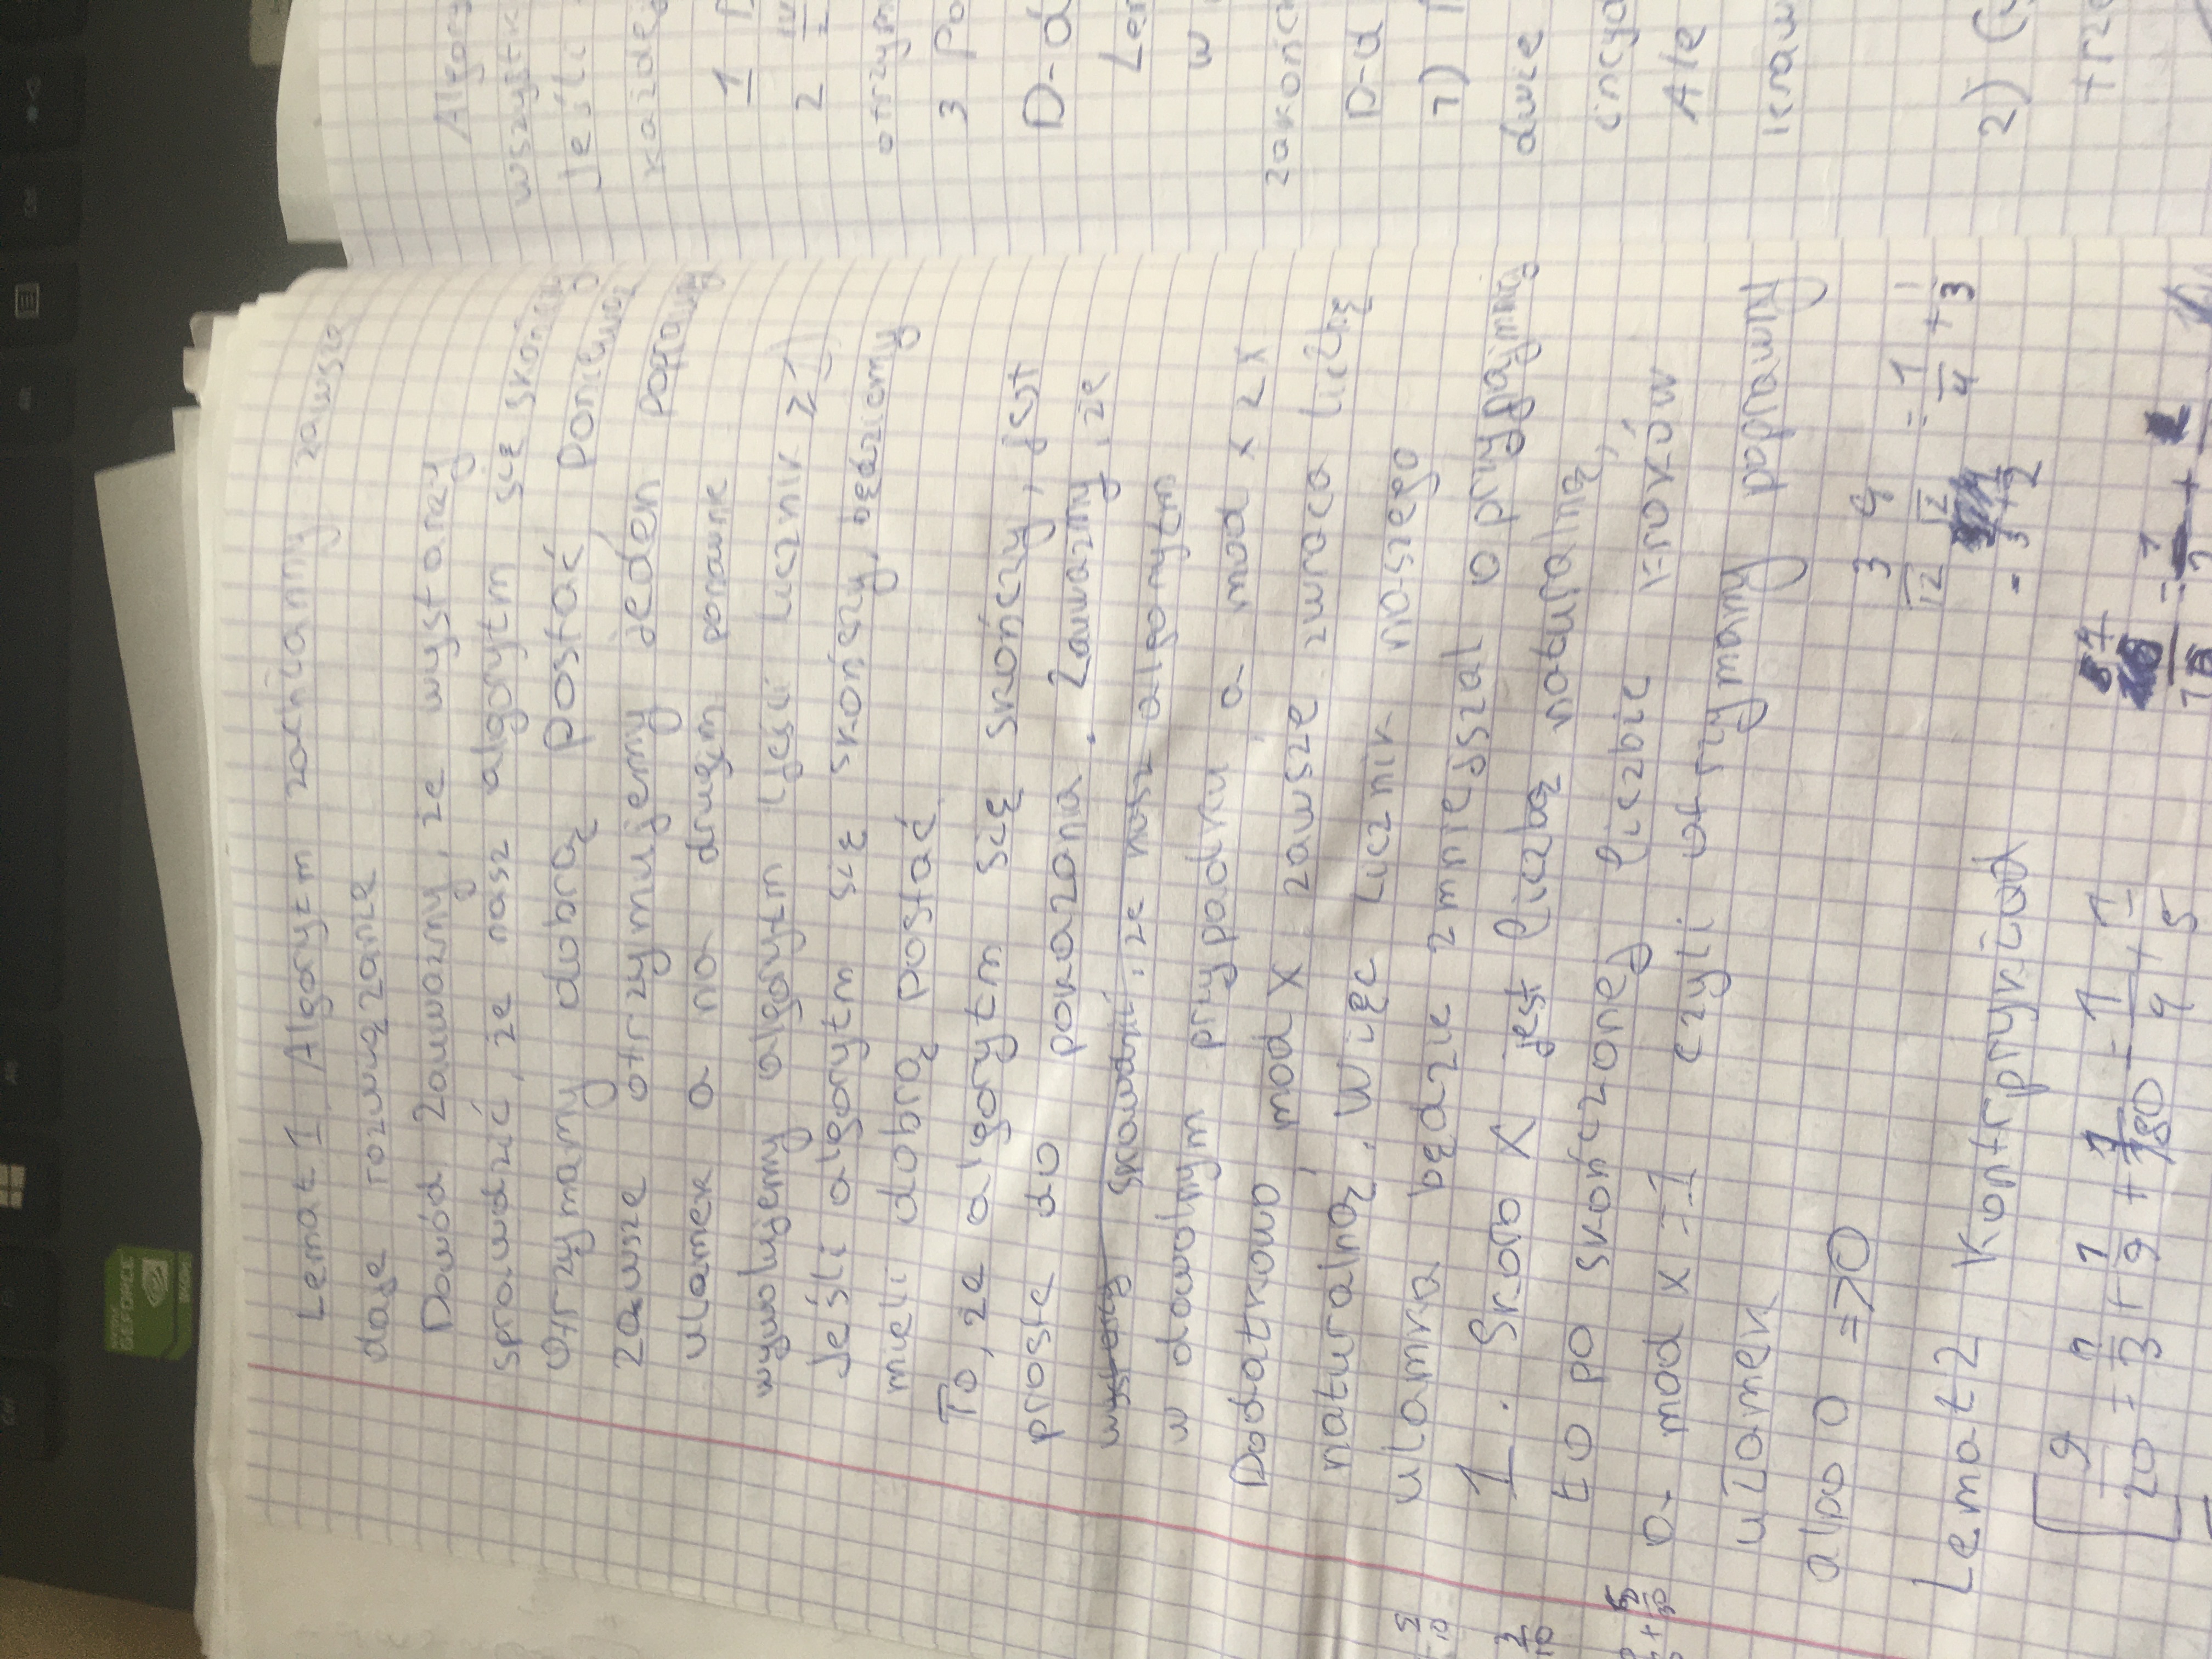 Ctrl
Alt
GEFORCE
Lemat 1 Algorytm zachłanny zawsze
daje rozwiązanie
Dowód Zauważmy, że wystarczy
sprawdzić, że nasz algorytm się skończy
Otrzymamy dobrą postać, ponieważ
zawsze otrzymujemy jeden poprawny
ułamek a na drugim ponownie
wywołujemy algorytm (jeśli licznik ≥1)
Jeśli algorytm się skończy, będziemy
mieli dobrą postać.
To, że algorytm się skończy, jest
proste do pokazania. Zauważmy, że
wystarczy sprawdzić, że nasz algorytm
w dowolnym przypadku, a mod x < x
Dodatkowo, mod x zawsze zwraca liczbę
naturalną. Więc licznik naszego
ułamka będzie zmniejszał o przynajmniej
1. Skoro x jest liczbą naturalną,
to po skończonej liczbie kroków
a mod x = 1 czyli otrzymamy poprawny
ułamek
albo 0 => 0
3/12 4/12 = 1/4 + 1/3
Lemat 2 Kontrprzykład
9/20 = 1/3 + 1/9 + 1/180 = 1/4 + 1/5
Algory
wszystk
Jeśli
każdej
1
2
otrzym
3 Po
D-d
Lem
w
zakończ
D-d
1)
dwie
incyd
Ale
kraw
2)